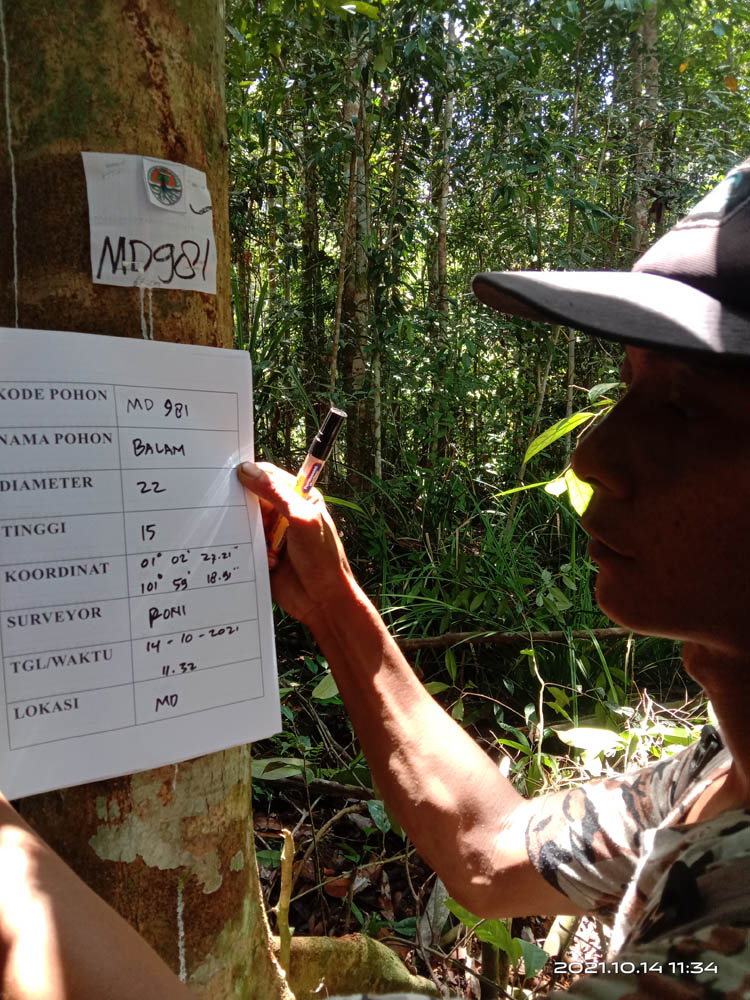 MD981
KODE POHON MD 981
NAMA POHON BALAM
DIAMETER 22
TINGGI 15
KOORDINAT 01° 02' 27.21"
101° 59' 18.91"
SURVEYOR RONI
TGL/WAKTU 14-10-2021
11.32
LOKASI MD
2021.10.14 11:34